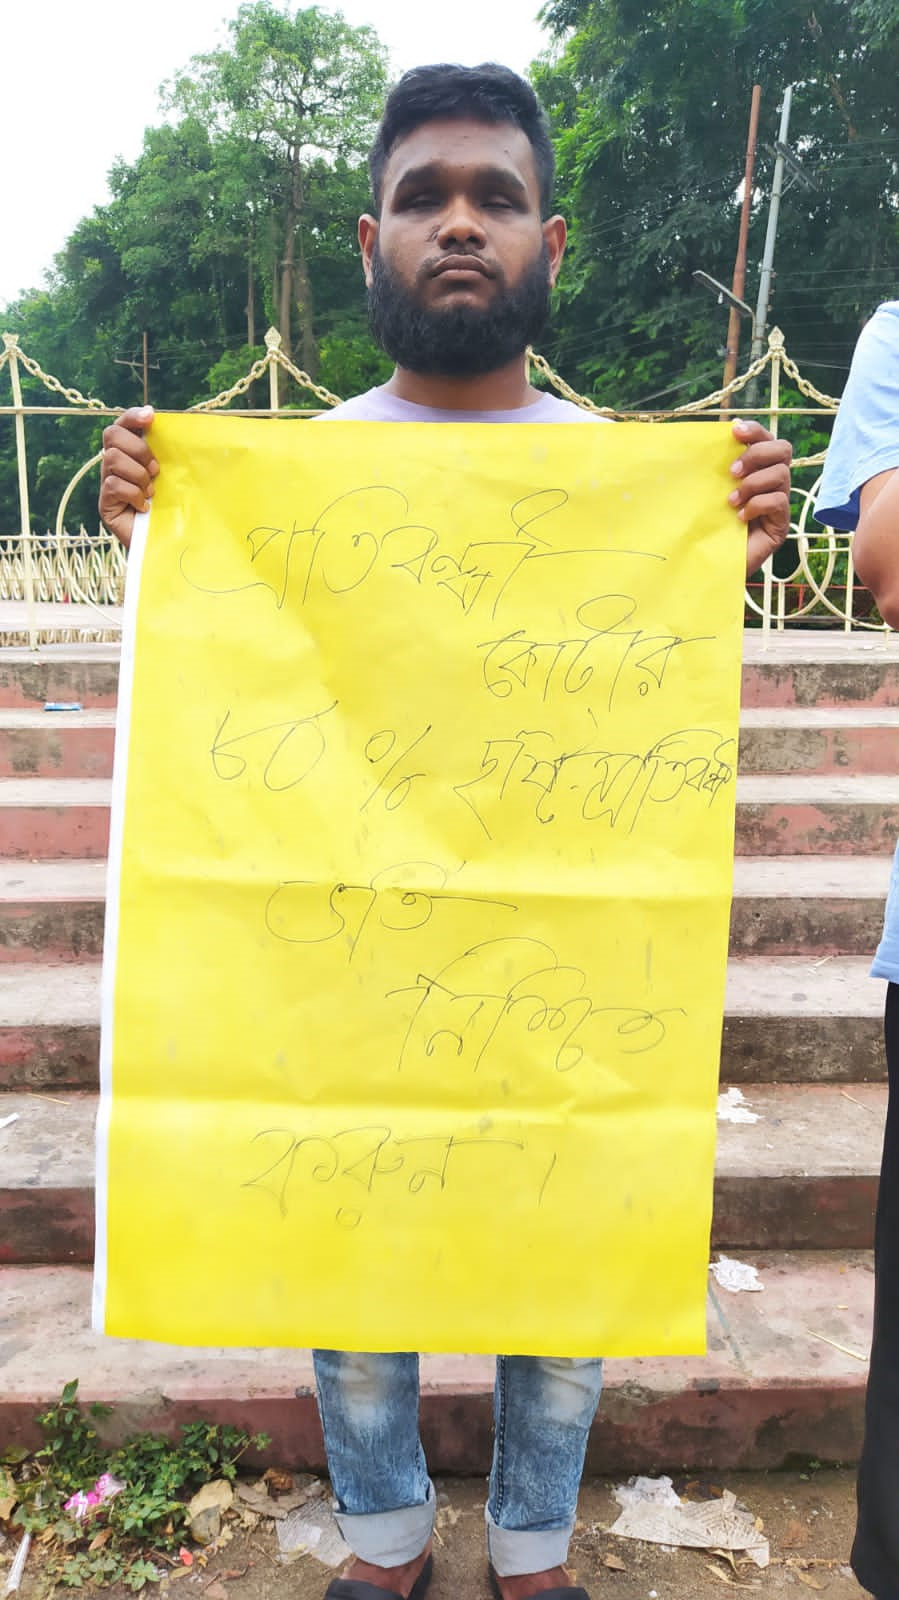 প্রতিবন্ধী
কোটার
৮০ % দৃষ্টি প্রতিবন্ধী
ভর্তি
নিশ্চিত
করুন ।